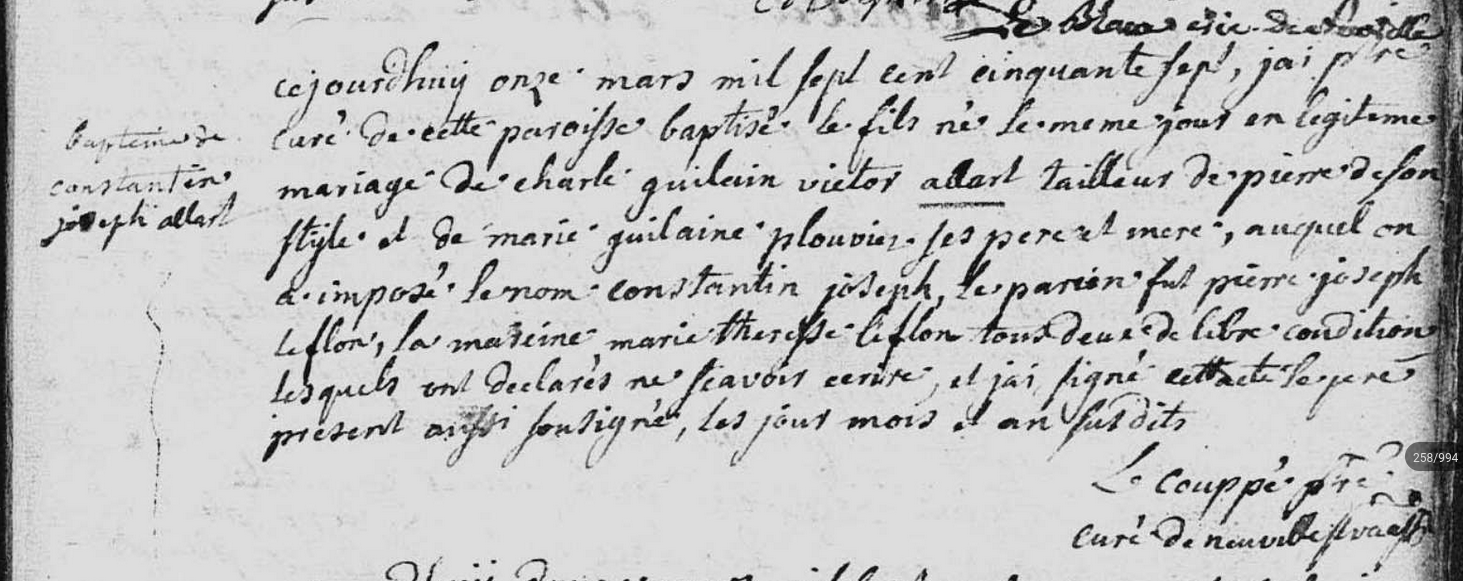 cejourdhuy onze mars mil sept cent cinquante sept, jai ptre
baptême de
curé de cette paroisse baptisé le fils né le meme jour en legiteme
constantin
mariage de charle guilain victor allart tailleur de pierre de son
joseph allart
style et de marie guilaine plouvier ses pere et mere, auquel on
a imposé le nom constantin joseph, le parien fut pierre joseph
leflon, la mareine marie theresse leflon tous deux de libre condition
lesquels ont declarés ne scavoir ecrire, et jai signé cett acte le pere
present aussi sousigné, les jour mois et an susdits
258/994
Le Couppé ptre
curé de neuville st vaast